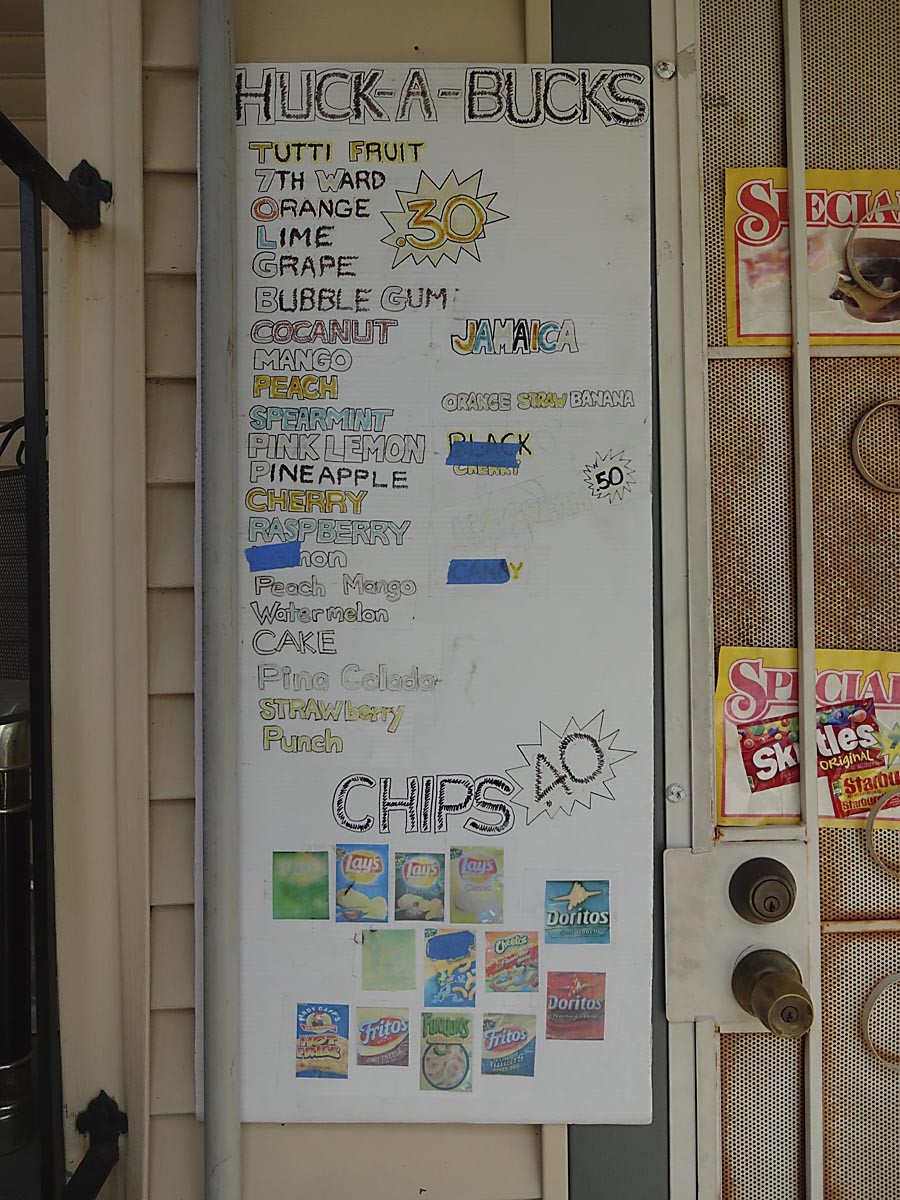 HUCK-A-BUCKS
TUTTI FRUIT
7TH WARD
ORANGE
.30
LIME
GRAPE
BUBBLE GUM
COCANUT
MANGO
PEACH
SPEARMINT
PINK LEMON
PINEAPPLE
CHERRY
RASPBERRY
mon
Peach Mango
Watermelon
CAKE
Pina Colada
STRAWberry
Punch
JAMAICA
ORANGE STRAW BANANA
BLACK
CHERRY
ICE CREAM
50
CANDY
CHIPS
40
Lay's
Lay's
Lay's
Classic
Doritos
Cheetos
Doritos
ANDY CAPP'S
HOT
FRIES
Fritos
CHILI CHEESE
FUNYUNS
Fritos
TWISTS
SPECIAL
SPECIAL
Skittles
ORIGINAL
Starbu
Starbu